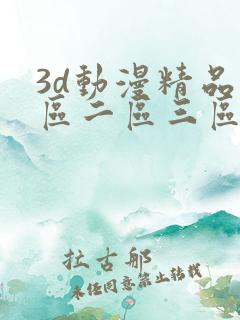 3d動漫精品
區二區三區
拉古邸
未经同意禁止转载